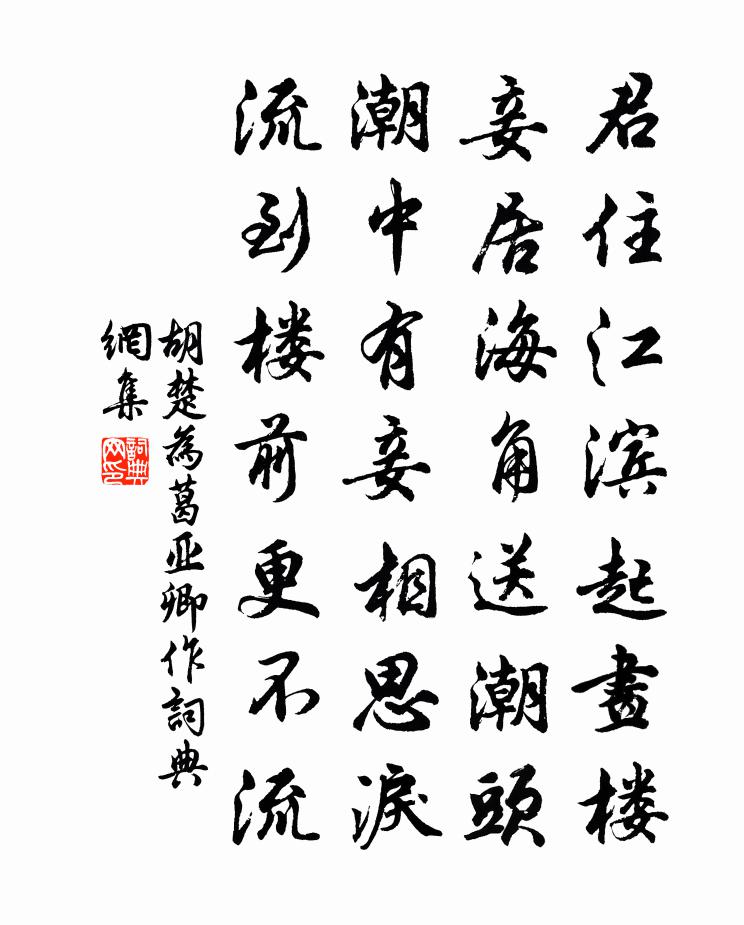 君住江滨起畫楼
妾居海角送潮頭
潮中有妾相思淚
流到楼前更不流
胡楚為葛亚卿作詞典
網集
詞典
网印